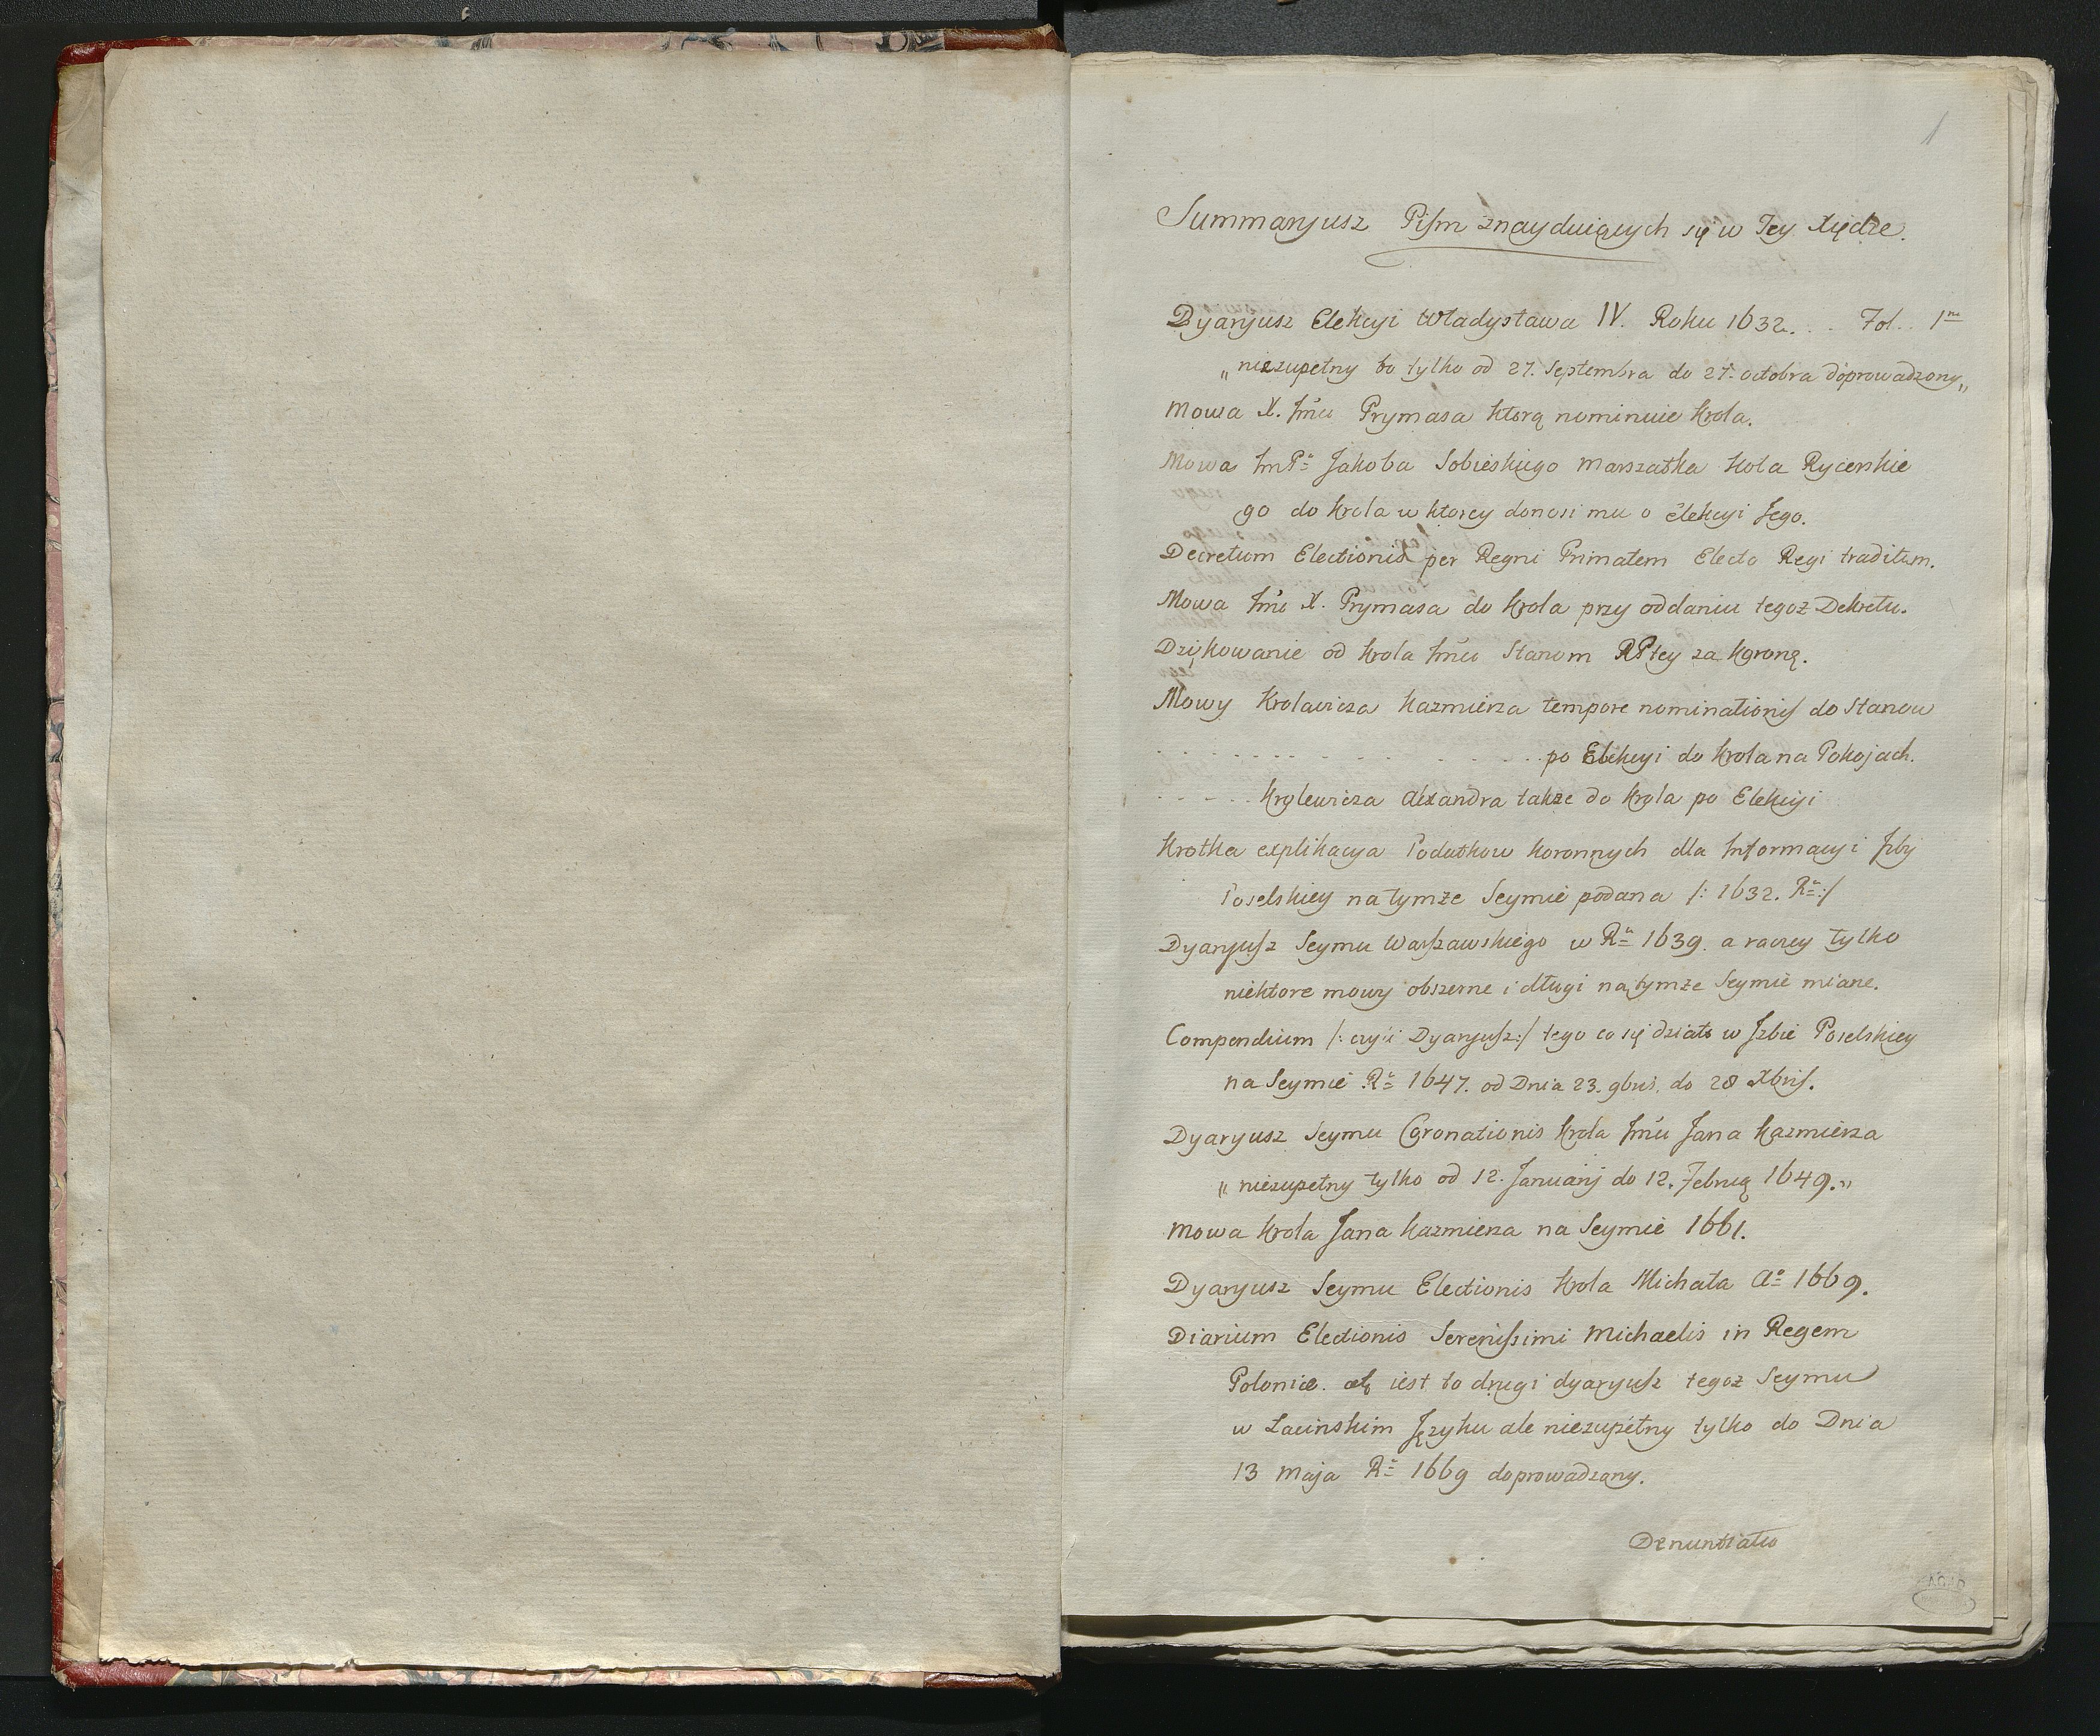 1
Summaryusz Pism znayduiących się w Tey Xiędze.
Dyaryusz Elekcyi Władysława IV. Roku 1632. . . Fol. . 1mo
„niezupełny bo tylko od 27. Septembra do 27. octobra doprowadzony„
Mowa X. Jmci Prymasa ktorą nominuie Krola.
Mowa ImPa Jakoba Sobieskiego Marszałka Koła Rycerskie
go do Krola w ktorey donosi mu o Elekcyi Jego.
Decretum Electionis per Regni Primatem Electo Regi traditum.
Mowa Jmci X. Prymasa do Krola przy oddaniu tegoz Dekretu.
Dziękowanie od Krola Jmci Stanom RPtey za Koronę.
Mowy Krolewicza Kazmierza tempore nominationis do Stanow
po Elekcyi do Krola na Pokojach.
Krolewicza Alexandra takze do Krola po Elekcyi
Krotka explikacya Podatkow Koronnych dla Informacyi Izby
Poselskiey na tymze Seymie podana /: 1632. Ru :/
Dyaryusz Seymu Warszawskiego w Ru 1639. a raczey tylko
niektore mowy obszerne i długi na tymze Seymie miane.
Compendium /: czyli Dyaryusz :/ tego co się działo w Jzbie Poselskiey
na Seymie Ru 1647. od Dnia 23. 9bris. do 28 Xbris.
Dyaryusz Seymu Coronationis Krola Jmci Jana Kazmierza
„ niezupełny tylko od 12. Januarij do 12. Februą 1649. „
Mowa Krola Jana Kazmierza na Seymie 1661.
Dyaryusz Seymu Electionis Krola Michała Ao 1669.
Diarium Electionis Serenissimi Michaelis in Regem
Poloniæ. iest to drugi dyaryusz tegoz Seymu
w Łacinskim Języku ale niezupełny tylko do Dnia
13 Maja Ru 1669 doprowadzany.
Denuntiatio